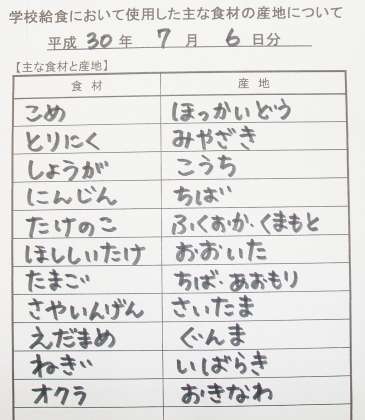 学校給食において使用した主な食材の産地について
平成 30 年 7 月 6 日分
【主な食材と産地】
食材 産地
こめ ほっかいどう
とりにく みやざき
しょうが こうち
にんじん ちば
たけのこ ふくおか・くまもと
ほししいたけ おおいた
たまご ちば・あおもり
さやいんげん さいたま
えだまめ ぐんま
ねぎ いばらき
オクラ おきなわ